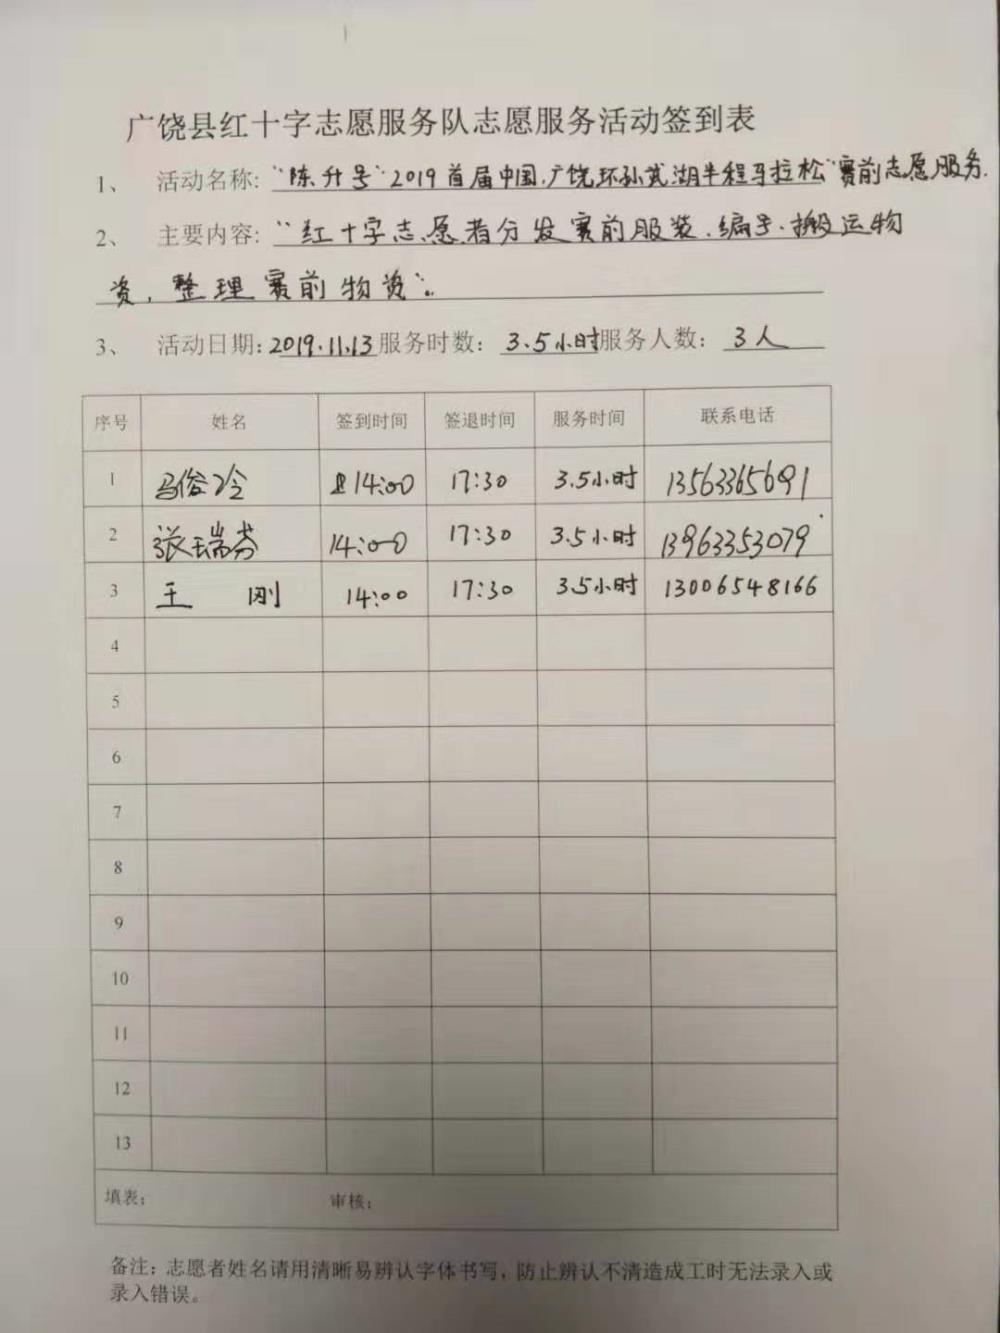 广饶县红十字志愿服务队志愿服务活动签到表
1、 活动名称: “陈升号”2019首届中国·广饶环孙武湖半程马拉松”赛前志愿服务.
2、 主要内容: “红十字志愿者分发赛前服装、编号、搬运物
资，整理赛前物资”。
3、 活动日期: 2019.11.13 服务时数: 3.5小时 服务人数: 3人
序号 姓名 签到时间 签退时间 服务时间 联系电话
1 马俊冷 14:00 17:30 3.5小时 13563365691
2 张瑞芬 14:00 17:30 3.5小时 13963353079
3 王 刚 14:00 17:30 3.5小时 13006548166
4
5
6
7
8
9
10
11
12
13
填表: 审核:
备注: 志愿者姓名请用清晰易辨认字体书写，防止辨认不清造成工时无法录入或
录入错误。